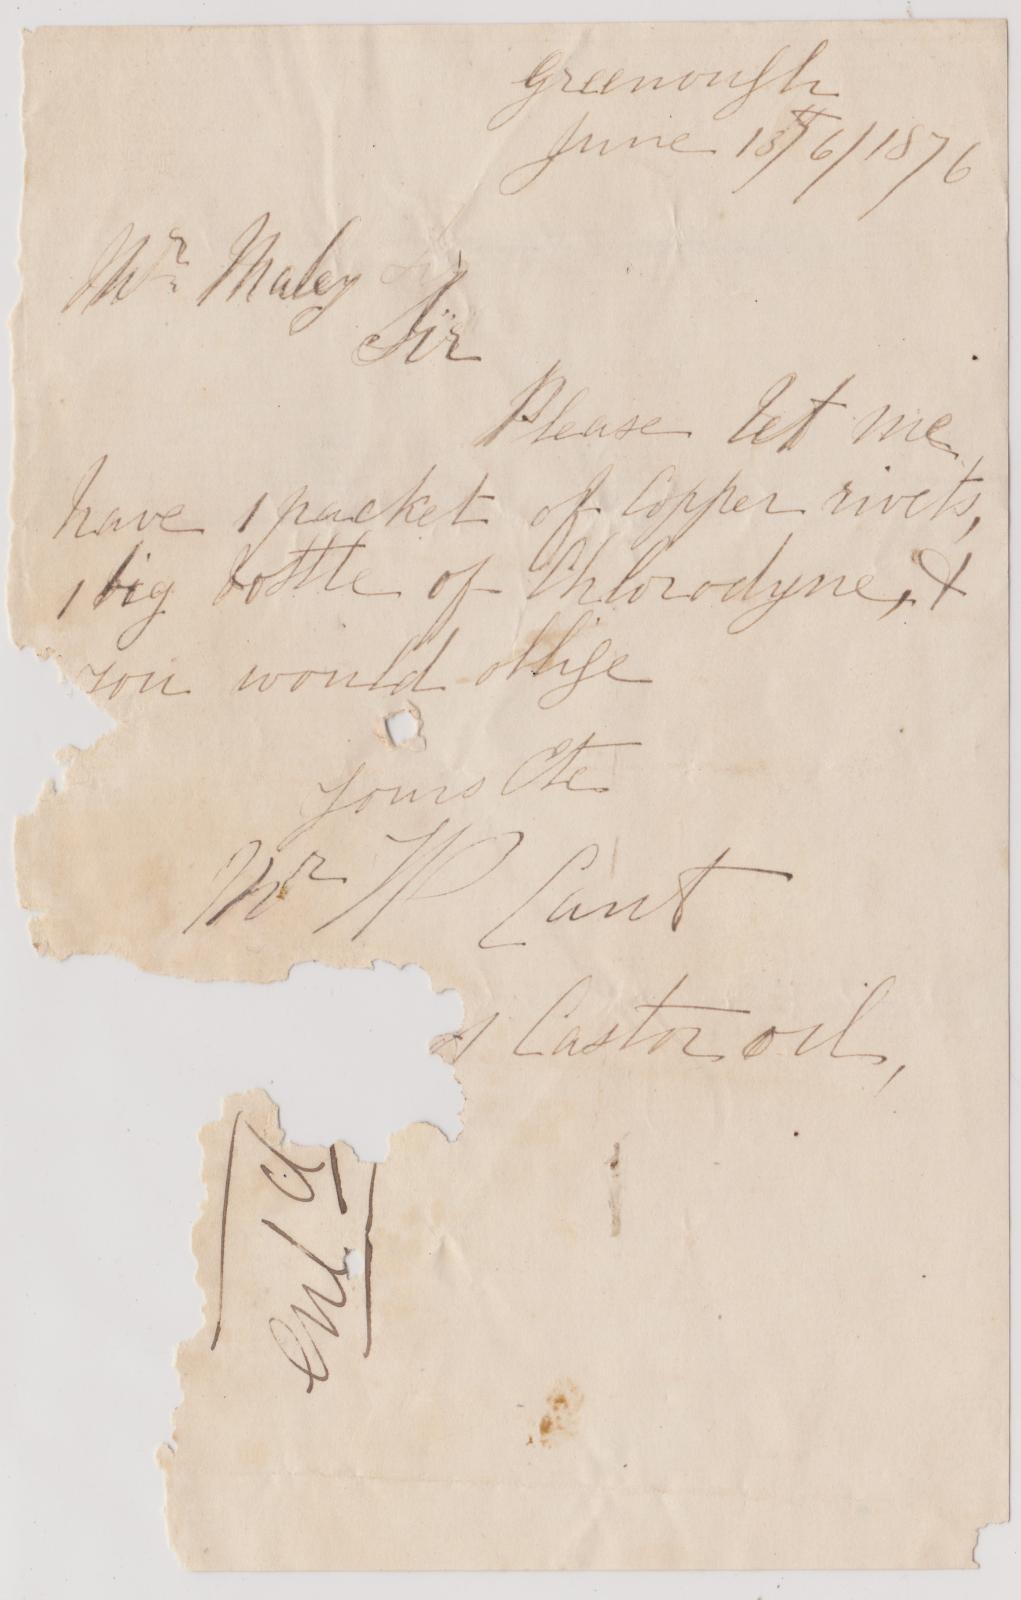 Greenough
June 13th/6/1876
Mr. Maley
Sir
Please let me
have 1 packet of Copper rivets,
1 big bottle of Chlorodyne, &
you would oblige
yours Etc
Mr W Cant
Castor oil,
Entd